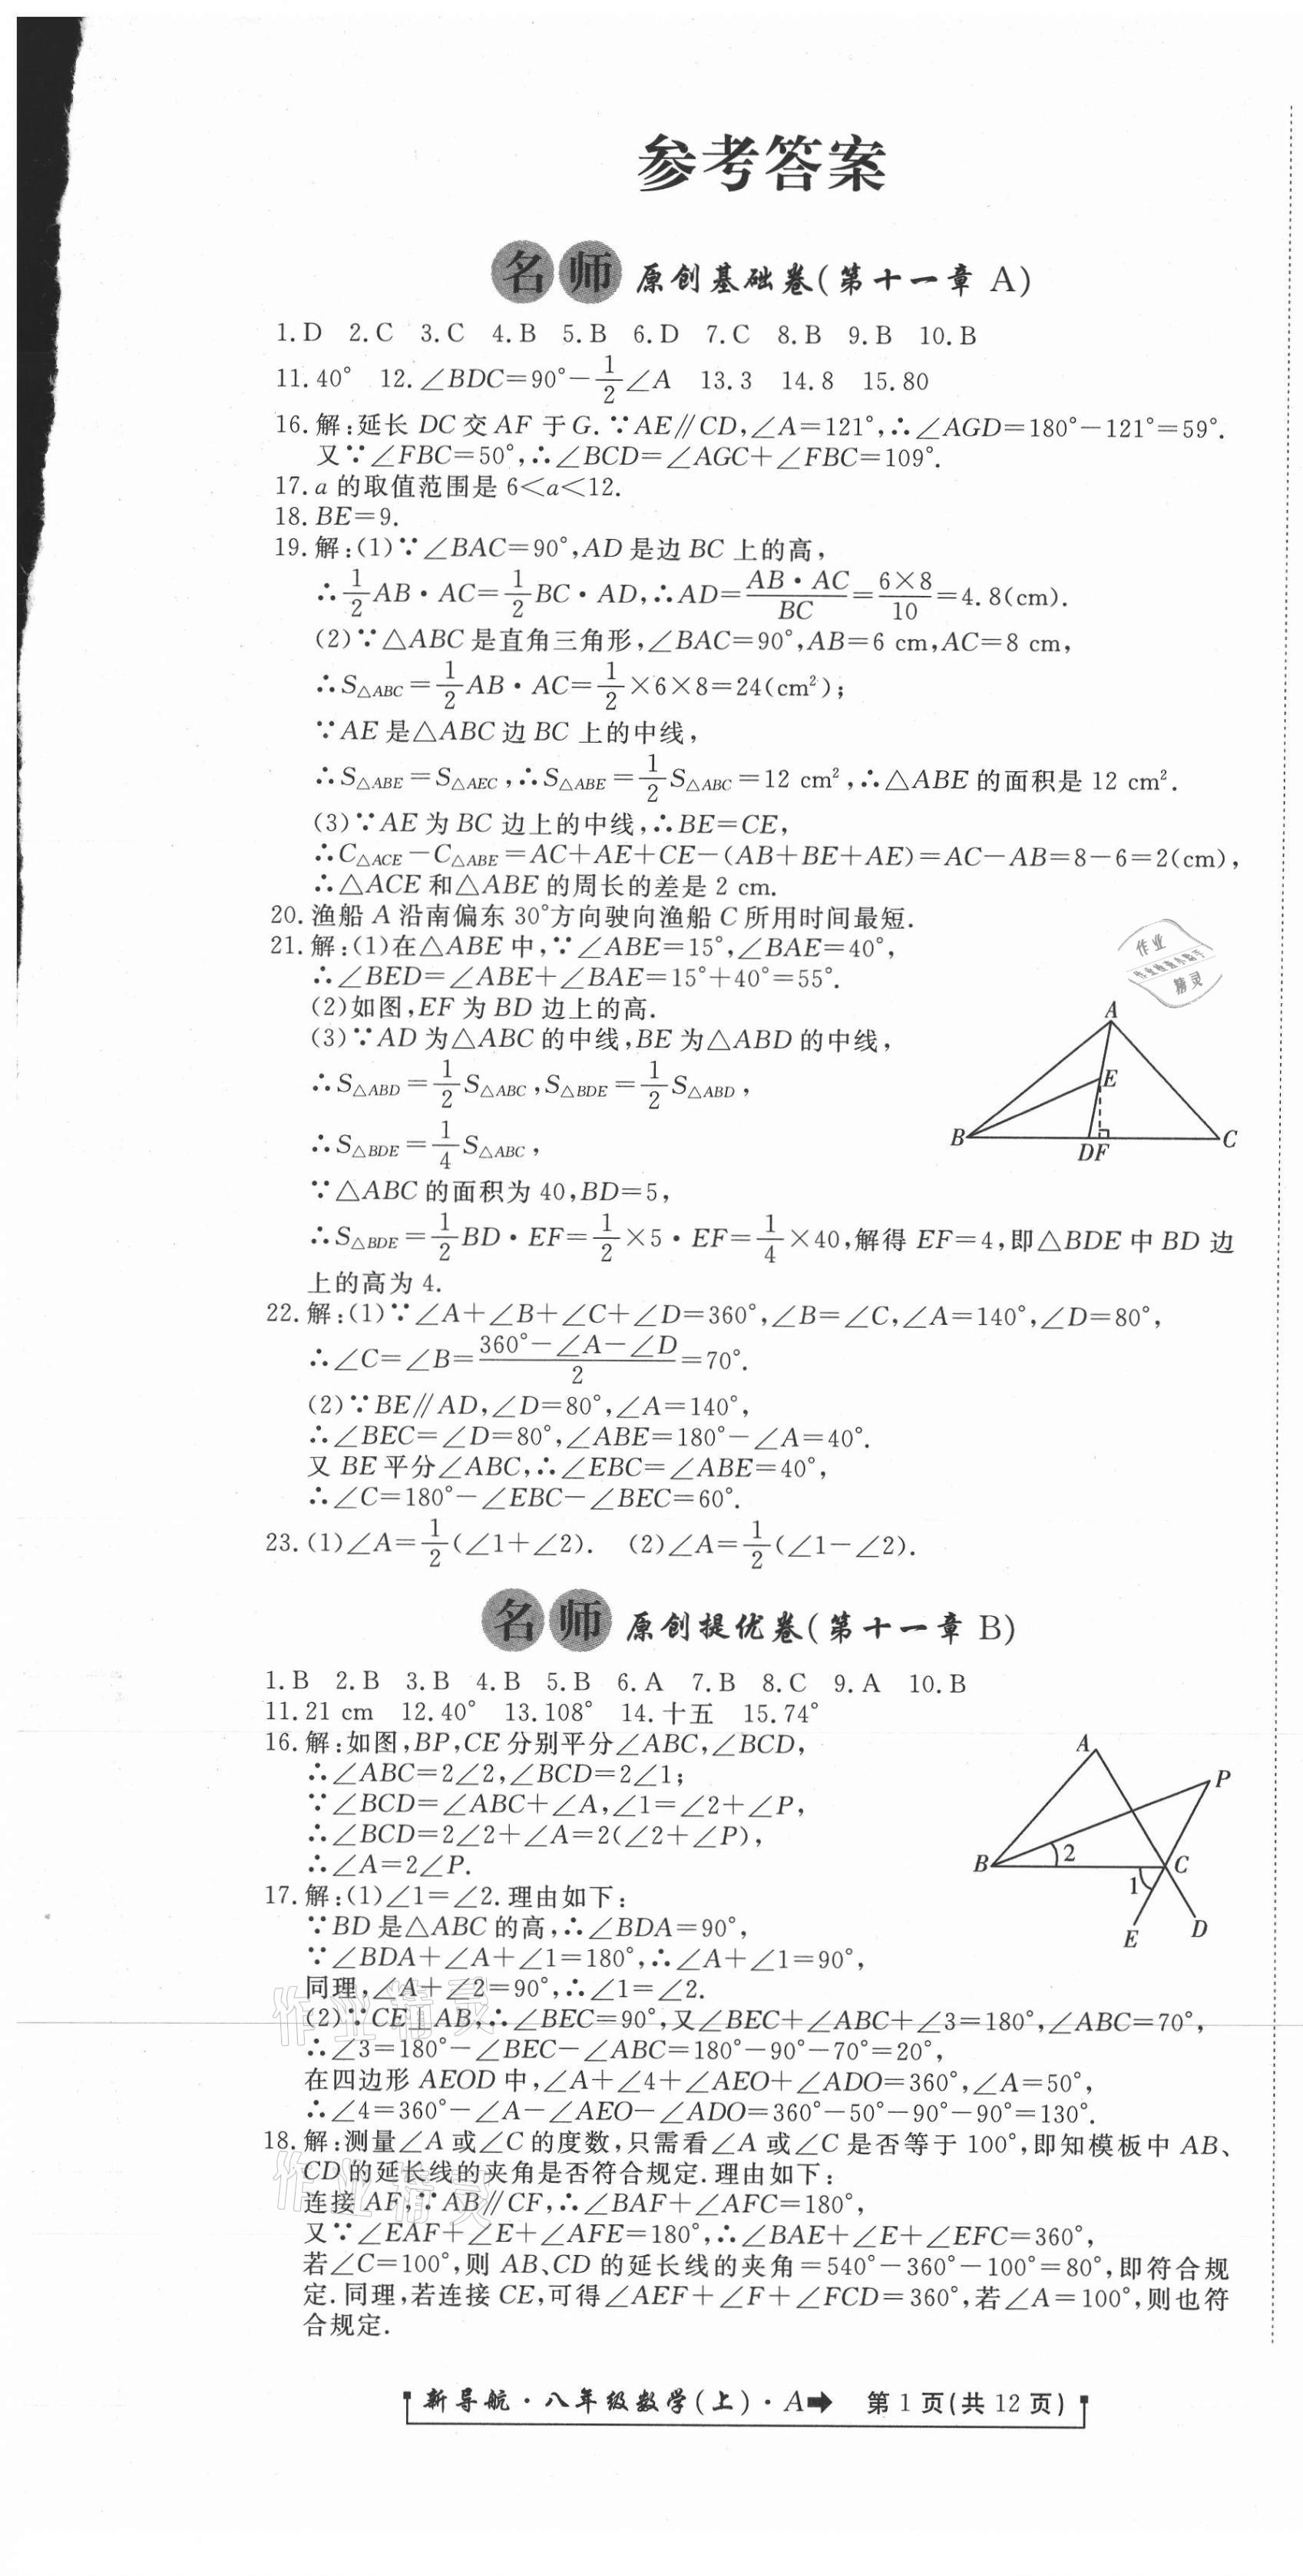 参考答案
名师 原创基础卷(第十一章 A)
1.D 2.C 3.C 4.B 5.B 6.D 7.C 8.B 9.B 10.B
11.40° 12.∠BDC=90°-1/2∠A 13.3 14.8 15.80
16.解:延长 DC 交 AF 于 G.∵AE∥CD,∠A=121°,∴∠AGD=180°-121°=59°.
又∵∠FBC=50°,∴∠BCD=∠AGC+∠FBC=109°.
17.a 的取值范围是 6<a<12.
18.BE=9.
19.解:(1)∵∠BAC=90°,AD 是边 BC 上的高,
∴1/2AB·AC=1/2BC·AD,∴AD=AB·AC/BC=6×8/10=4.8(cm).
(2)∵△ABC 是直角三角形,∠BAC=90°,AB=6 cm,AC=8 cm,
∴S△ABC=1/2AB·AC=1/2×6×8=24(cm²);
∵AE 是△ABC 边 BC 上的中线,
∴S△ABE=S△AEC,∴S△ABE=1/2S△ABC=12 cm²,∴△ABE 的面积是 12 cm².
(3)∵AE 为 BC 边上的中线,∴BE=CE,
∴C△ACE-C△ABE=AC+AE+CE-(AB+BE+AE)=AC-AB=8-6=2(cm),
∴△ACE 和△ABE 的周长的差是 2 cm.
20.渔船 A 沿南偏东 30°方向驶向渔船 C 所用时间最短.
21.解:(1)在△ABE 中,∵∠ABE=15°,∠BAE=40°,
∴∠BED=∠ABE+∠BAE=15°+40°=55°.
(2)如图,EF 为 BD 边上的高.
(3)∵AD 为△ABC 的中线,BE 为△ABD 的中线,
∴S△ABD=1/2S△ABC,S△BDE=1/2S△ABD,
∴S△BDE=1/4S△ABC,
∵△ABC 的面积为 40,BD=5,
∴S△BDE=1/2BD·EF=1/2×5·EF=1/4×40,解得 EF=4,即△BDE 中 BD 边
上的高为 4.
A
E
B
DF
C
作业
精灵
22.解:(1)∵∠A+∠B+∠C+∠D=360°,∠B=∠C,∠A=140°,∠D=80°,
∴∠C=∠B=360°-∠A-∠D/2=70°.
(2)∵BE∥AD,∠D=80°,∠A=140°,
∴∠BEC=∠D=80°,∠ABE=180°-∠A=40°.
又 BE 平分∠ABC,∴∠EBC=∠ABE=40°,
∴∠C=180°-∠EBC-∠BEC=60°.
23.(1)∠A=1/2(∠1+∠2). (2)∠A=1/2(∠1-∠2).
名师 原创提优卷(第十一章 B)
1.B 2.B 3.B 4.B 5.B 6.A 7.B 8.C 9.A 10.B
11.21 cm 12.40° 13.108° 14.十五 15.74°
16.解:如图,BP,CE 分别平分∠ABC,∠BCD,
∴∠ABC=2∠2,∠BCD=2∠1;
∵∠BCD=∠ABC+∠A,∠1=∠2+∠P,
∴∠BCD=2∠2+∠A=2(∠2+∠P),
∴∠A=2∠P.
A
P
B
2
C
1
E
D
17.解:(1)∠1=∠2.理由如下:
∵BD 是△ABC 的高,∴∠BDA=90°,
∵∠BDA+∠A+∠1=180°,∴∠A+∠1=90°,
同理,∠A+∠2=90°,∴∠1=∠2.
(2)∵CE⊥AB,∴∠BEC=90°,又∠BEC+∠ABC+∠3=180°,∠ABC=70°,
∴∠3=180°-∠BEC-∠ABC=180°-90°-70°=20°,
在四边形 AEOD 中,∠A+∠4+∠AEO+∠ADO=360°,∠A=50°,
∴∠4=360°-∠A-∠AEO-∠ADO=360°-50°-90°-90°=130°.
18.解:测量∠A 或∠C 的度数,只需看∠A 或∠C 是否等于 100°,即知模板中 AB、
CD 的延长线的夹角是否符合规定.理由如下:
连接 AF,∵AB∥CF,∴∠BAF+∠AFC=180°,
又∵∠EAF+∠E+∠AFE=180°,∴∠BAE+∠E+∠EFC=360°,
若∠C=100°,则 AB、CD 的延长线的夹角=540°-360°-100°=80°,即符合规
定.同理,若连接 CE,可得∠AEF+∠F+∠FCD=360°,若∠A=100°,则也符
合规定.
作业精灵
作业精灵
新导航·八年级数学(上)·A➡ 第 1 页(共 12 页)